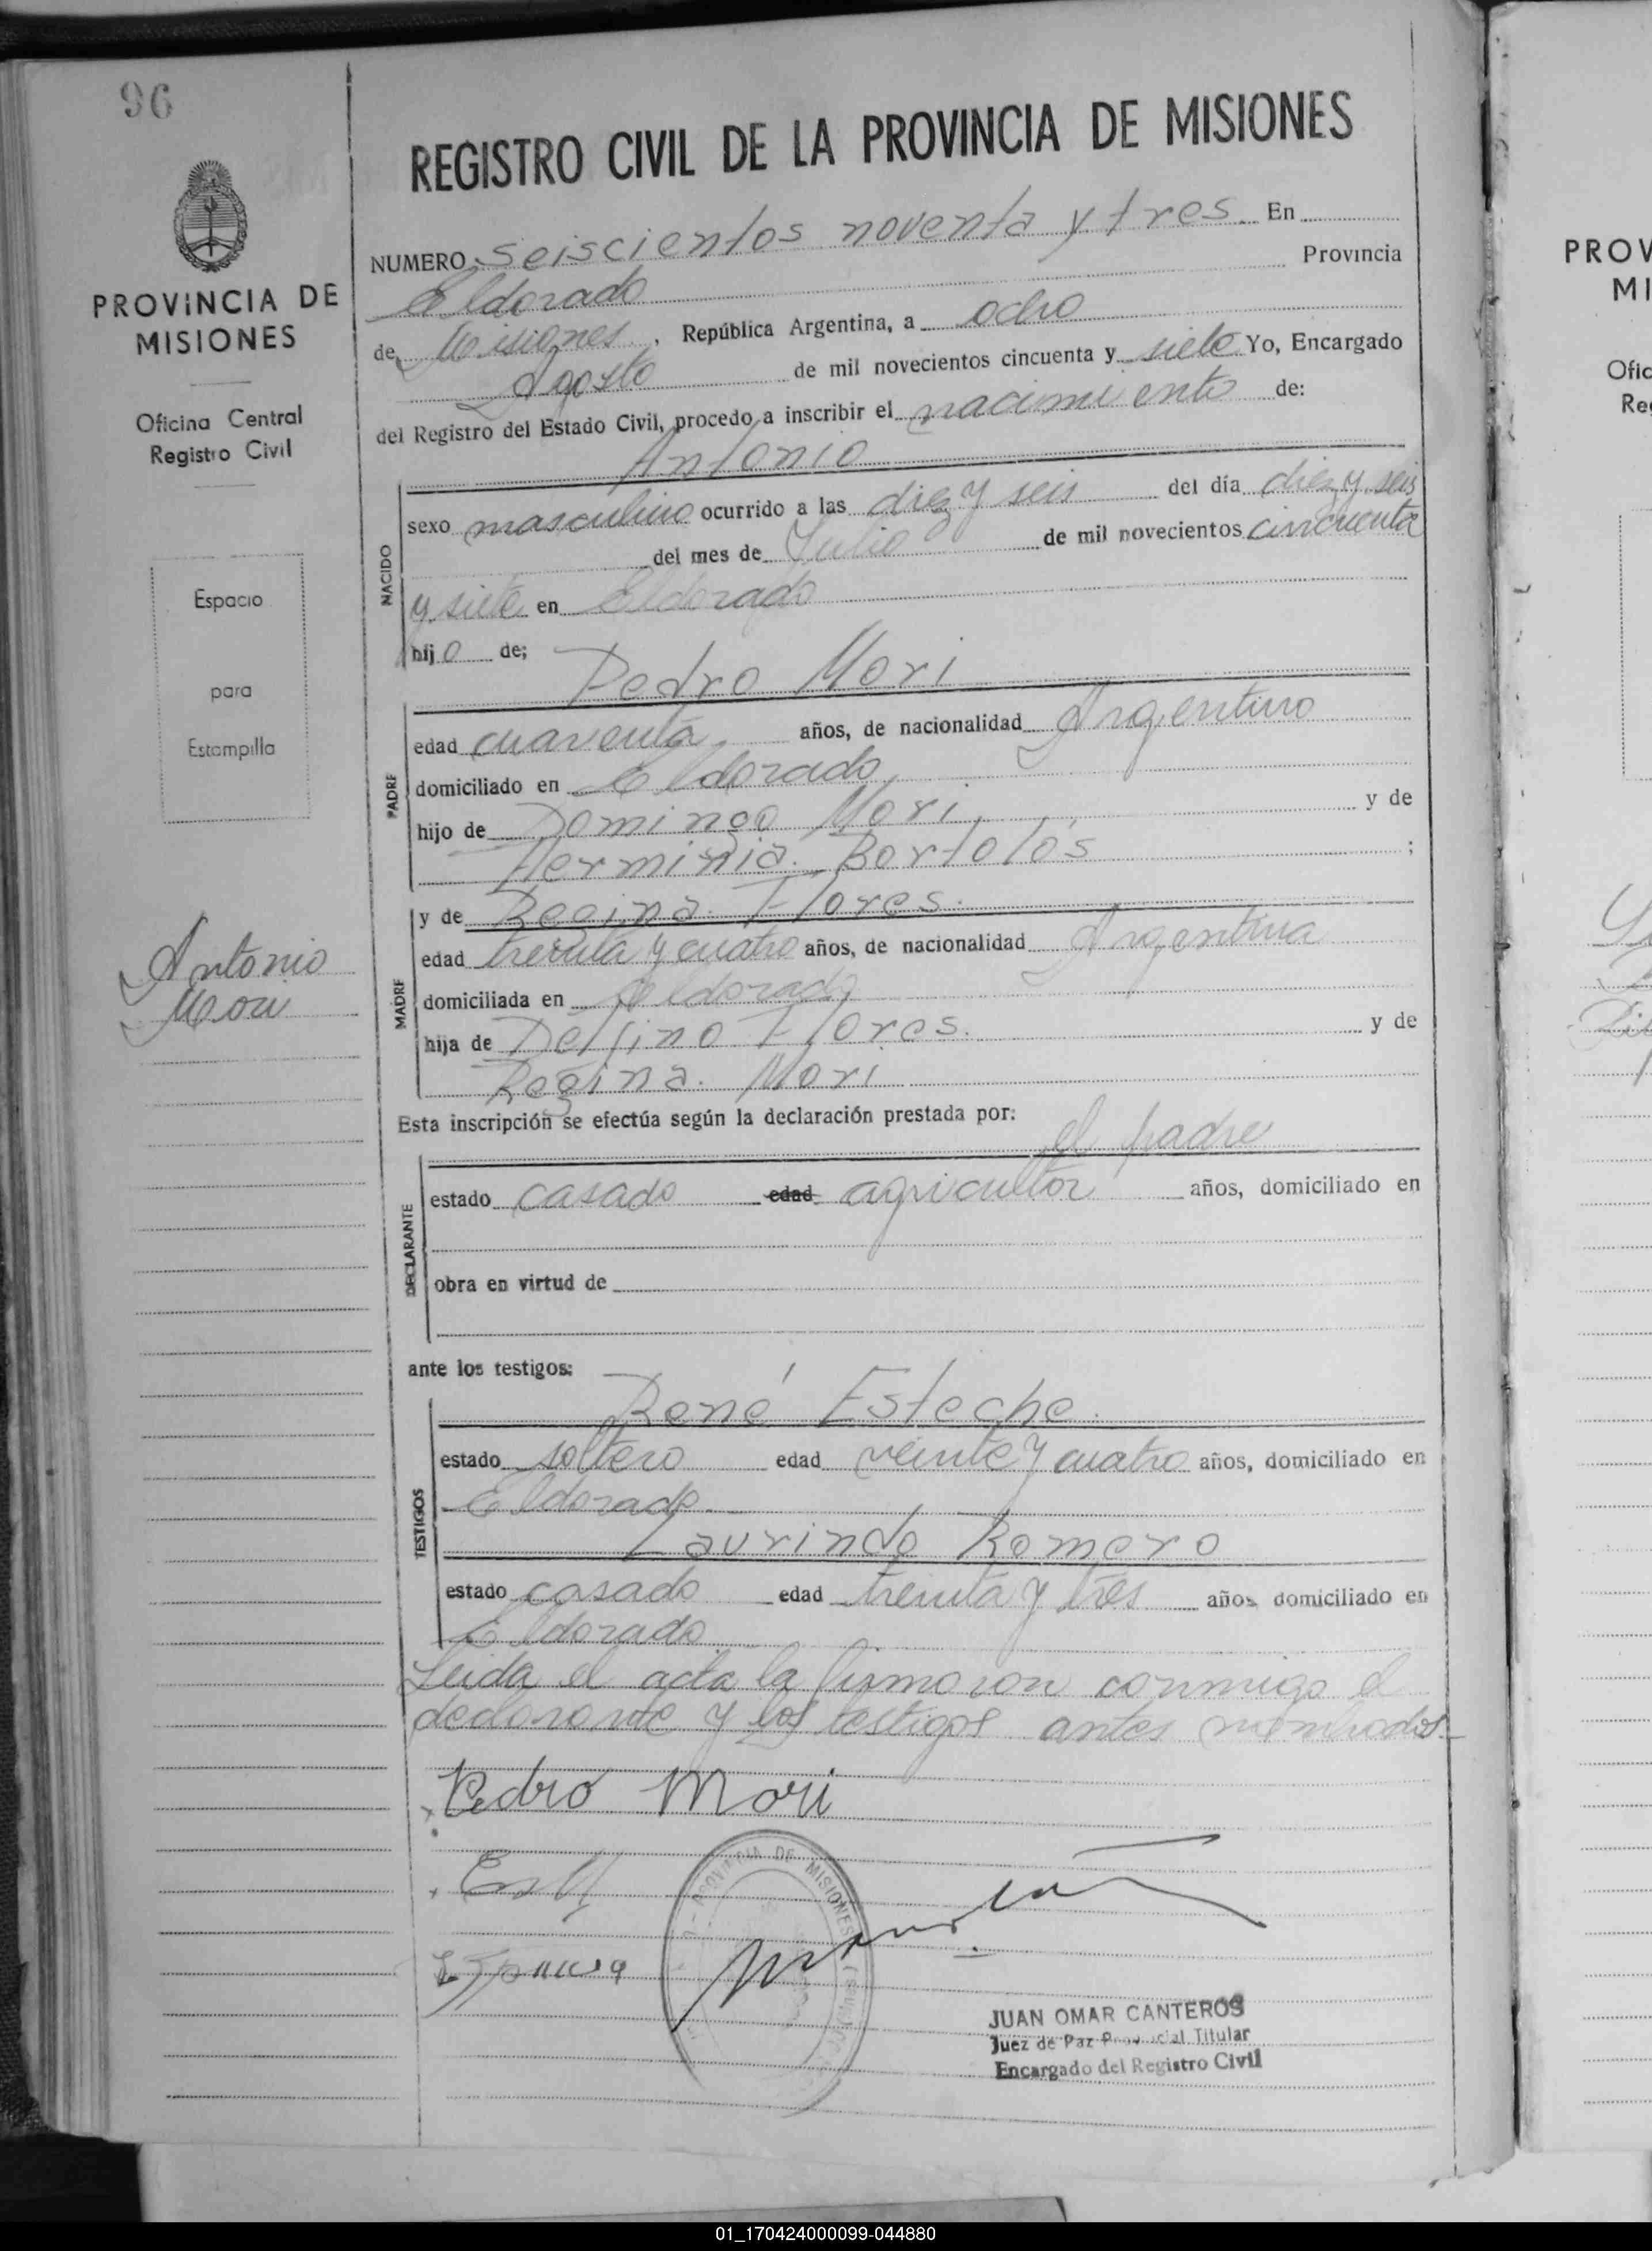 96
REGISTRO CIVIL DE LA PROVINCIA DE MISIONES
PROVINCIA DE
MISIONES
Oficina Central
Registro Civil
Espacio
para
Estampilla
Antonio
Mori
NUMERO seiscientos noventa y tres. En
Eldorado Provincia
de Misiones, República Argentina, a ocho
Agosto de mil novecientos cincuenta y siete Yo, Encargado
del Registro del Estado Civil, procedo a inscribir el nacimiento de:
Antonio
NACIDO
sexo masculino ocurrido a las diez y seis del día diez y seis
del mes de Julio de mil novecientos cincuenta
y siete en Eldorado
hijo de;
Pedro Mori
PADRE
edad cuarenta años, de nacionalidad Argentino
domiciliado en Eldorado
hijo de Domingo Mori y de
Herminia Bortolós ;
MADRE
y de Regina Flores.
edad treinta y cuatro años, de nacionalidad Argentina
domiciliada en Eldorado
hija de Delfino Flores. y de
Regina. Mori
Esta inscripción se efectúa según la declaración prestada por:
el padre
DECLARANTE
estado casado edad agricultor años, domiciliado en
obra en virtud de
ante los testigos:
René Esteche.
TESTIGOS
estado soltero edad veinte y cuatro años, domiciliado en
Eldorado.
Laurindo Romero
estado casado edad treinta y tres años domiciliado en
Eldorado
Leida el acta la firmaron conmigo el
declarante y los testigos antes nombrados.
Pedro Mori
PROVINCIA DE MISIONES
JUAN OMAR CANTEROS
Juez de Paz Provincial Titular
Encargado del Registro Civil
PROV
MI
Ofic
Re
01_170424000099-044880